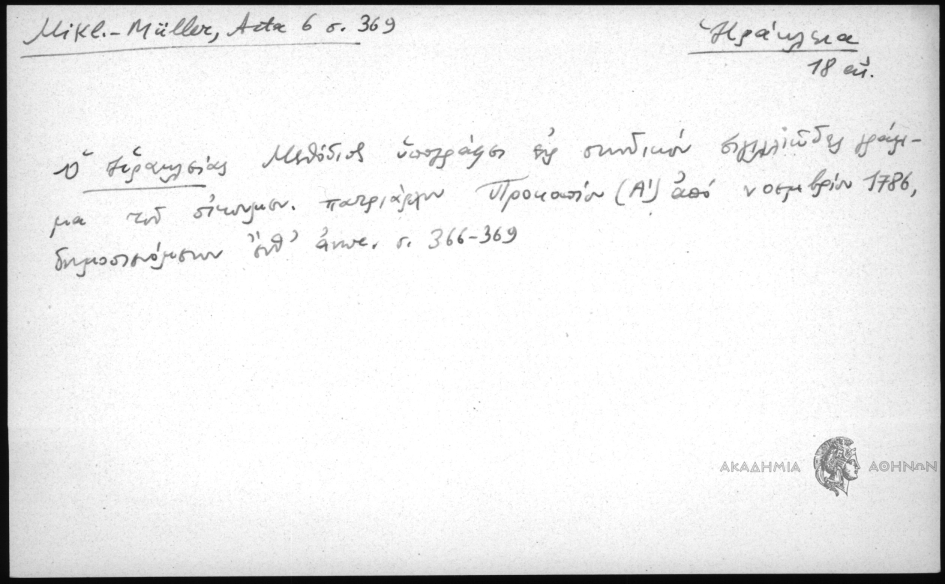 Mikl.-Müller, Acta 6 σ. 369
Ἡράκλεια
18 αἰ.
Ὁ Ἡρακλείας Μεθόδιος ὑπογράφει εἰς συνοδικόν σιγιλλιῶδες γράμ-
μα τοῦ οἰκουμεν. πατριάρχου Προκοπίου (Α') ἀπό νοεμβρίου 1786,
δημοσιευόμενον ἔνθ' ἀνωτ. σ. 366-369
ΑΚΑΔΗΜΙΑ ΑΘΗΝΩΝ